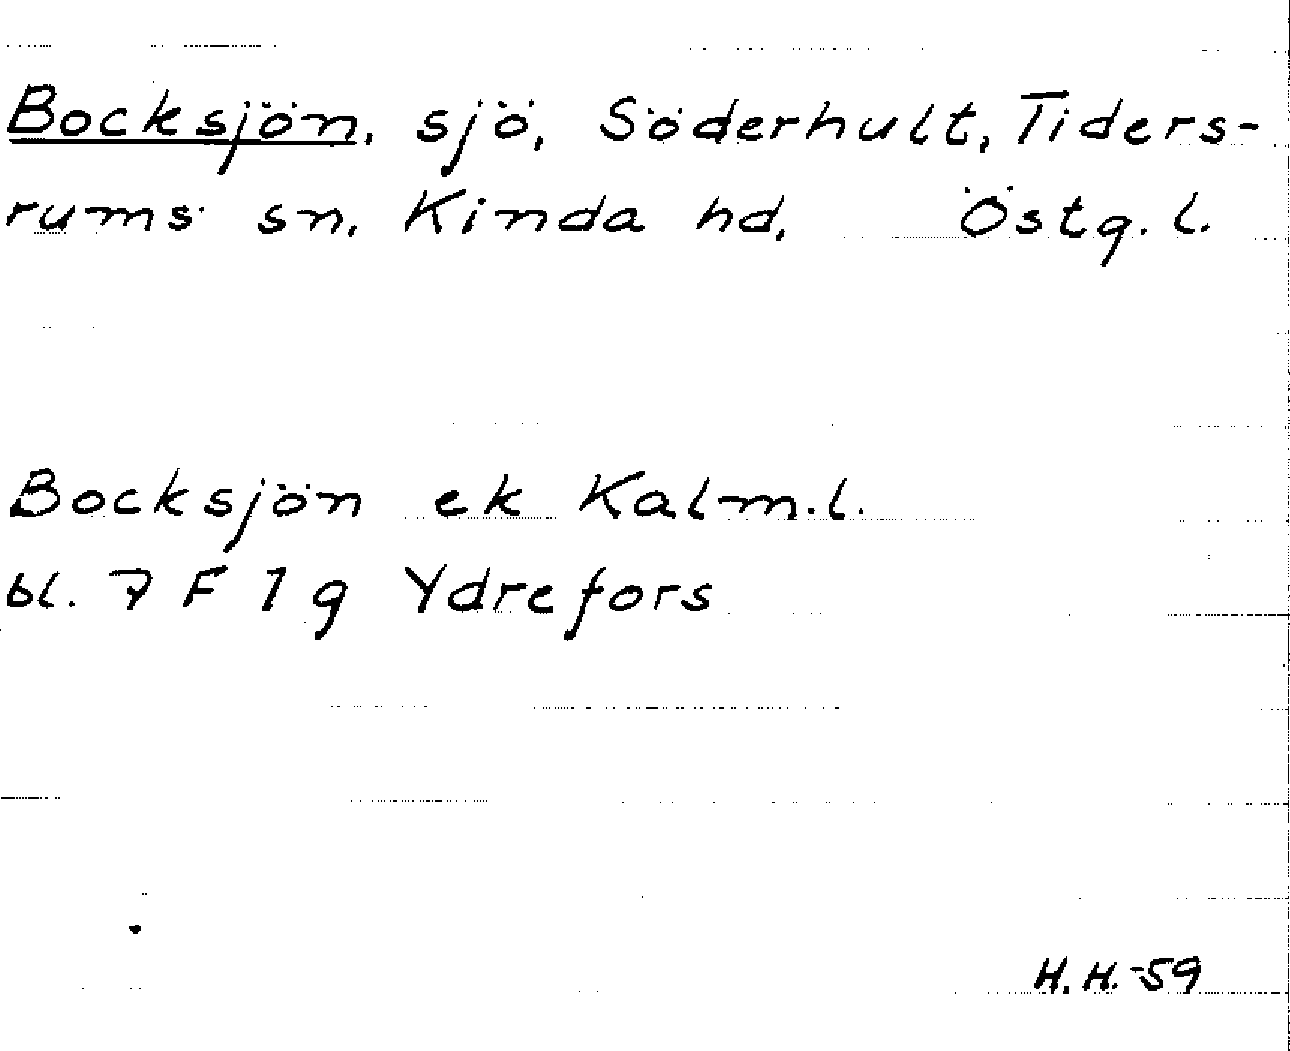 Bocksjön, sjö, Söderhult, Tiders-
rums sn, Kinda hd, Östg. l.
Bocksjön ek Kalm.l.
bl. 7 F 1 g Ydrefors
H.H.-59